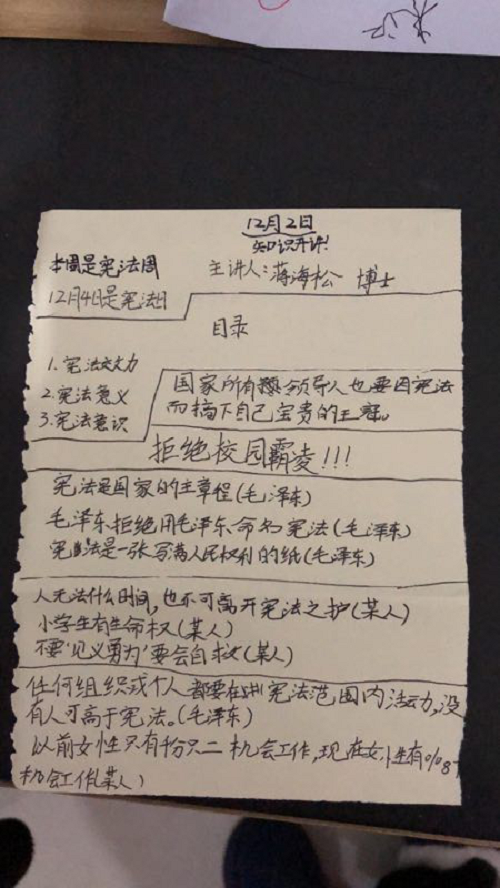 12月2日
知识开讲!
本周是宪法周
主讲人:蒋海松 博士
12月4日是宪法日
目录
1.宪法效力
2.宪法意义
3.宪法意识
国家所有 领导人也要因宪法
而摘下自己宝贵的王冠。
拒绝校园霸凌!!!
宪法是国家的主章程(毛泽东)
毛泽东拒绝用毛泽东命名宪法(毛泽东)
宪法是一张写满人民权利的纸(毛泽东)
人无法什么时间,也不可离开宪法之护(某人)
小学生有生命权(某人)
不要“见义勇为”要会自救(某人)
任何组织或个人都要在 宪法范围内活动,没
有人可高于宪法。(毛泽东)
以前女性只有 分只二机会工作,现在女性有
机会工作(某人)